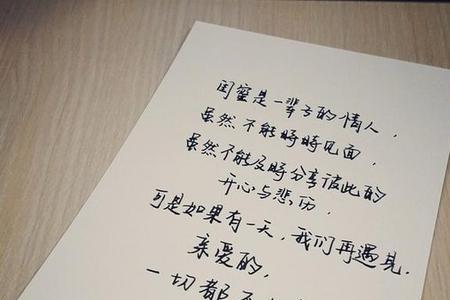 闺蜜是一辈子的情人，
虽然不能時時见面，
虽然不能及時分享彼此的
开心与悲伤，
可是如果有一天，我们再遇見.
亲爱的，
一切都